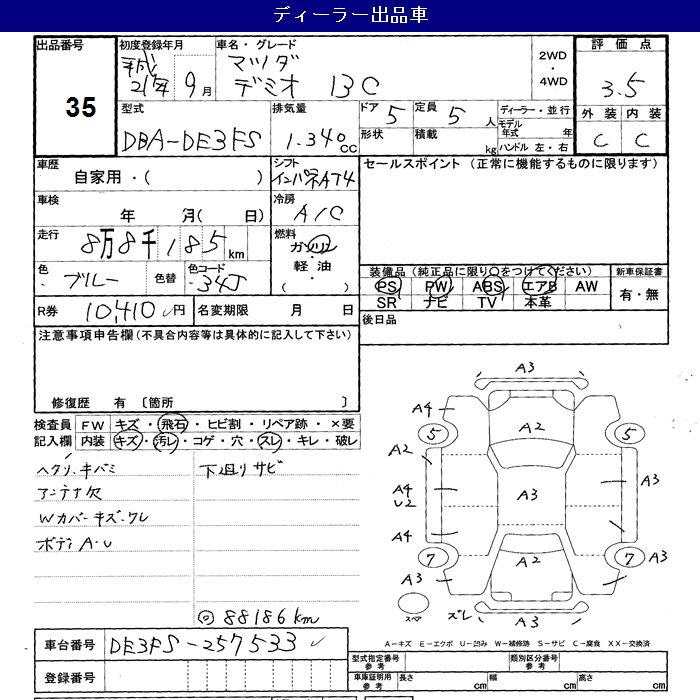 ディーラー出品車
出品番号
35
初度登録年月
平成
21年 9月
車名・グレード
マツダ
デミオ 13C
2WD
・
4WD
評価点
3.5
外装 内装
C C
型式
DBA-DE3FS
排気量
1.340cc
ドア 5
形状
定員 5人
積載 kg
ディーラー・並行
モデル年式 年
ハンドル 左・右
車歴
自家用・( )
シフト
インパネAT4
セールスポイント (正常に機能するものに限ります)
車検
年 月( 日)
冷房
A/C
走行
8万8千185km
燃料
ガソリン
軽油
・( )
色
ブルー
色替
色コード
34J
装備品 (純正品に限り○をつけてください)
PS PW ABS エアB AW
SR ナビ TV 本革
新車保証書
有・無
R券 10,410円
名変期限 月 日
後日品
注意事項申告欄(不具合内容等は具体的に記入して下さい)
修復歴 有 〔箇所 〕
検査員記入欄
FW キズ・飛石・ヒビ割・リペア跡・×要
内装 キズ・汚レ・コゲ・穴・スレ・キレ・破レ
ヘタリ・キバミ
アンテナ欠
Wカバーキズ・ワレ
ボディA・U
下廻りサビ
◎88186km
A3
A4
A2
5 5
A2
A4
U2
A3
A3
A4
7 7 A3
A2
A3
スペア
ズレ
A3
A-キズ E-エクボ U-凹み W-補修跡 S-サビ C-腐食 XX-交換済
車台番号 DE3FS-257533
登録番号
型式指定番号
参考
類別区分番号
参考
車庫証明用
参考
長さ cm
幅 cm
高さ cm